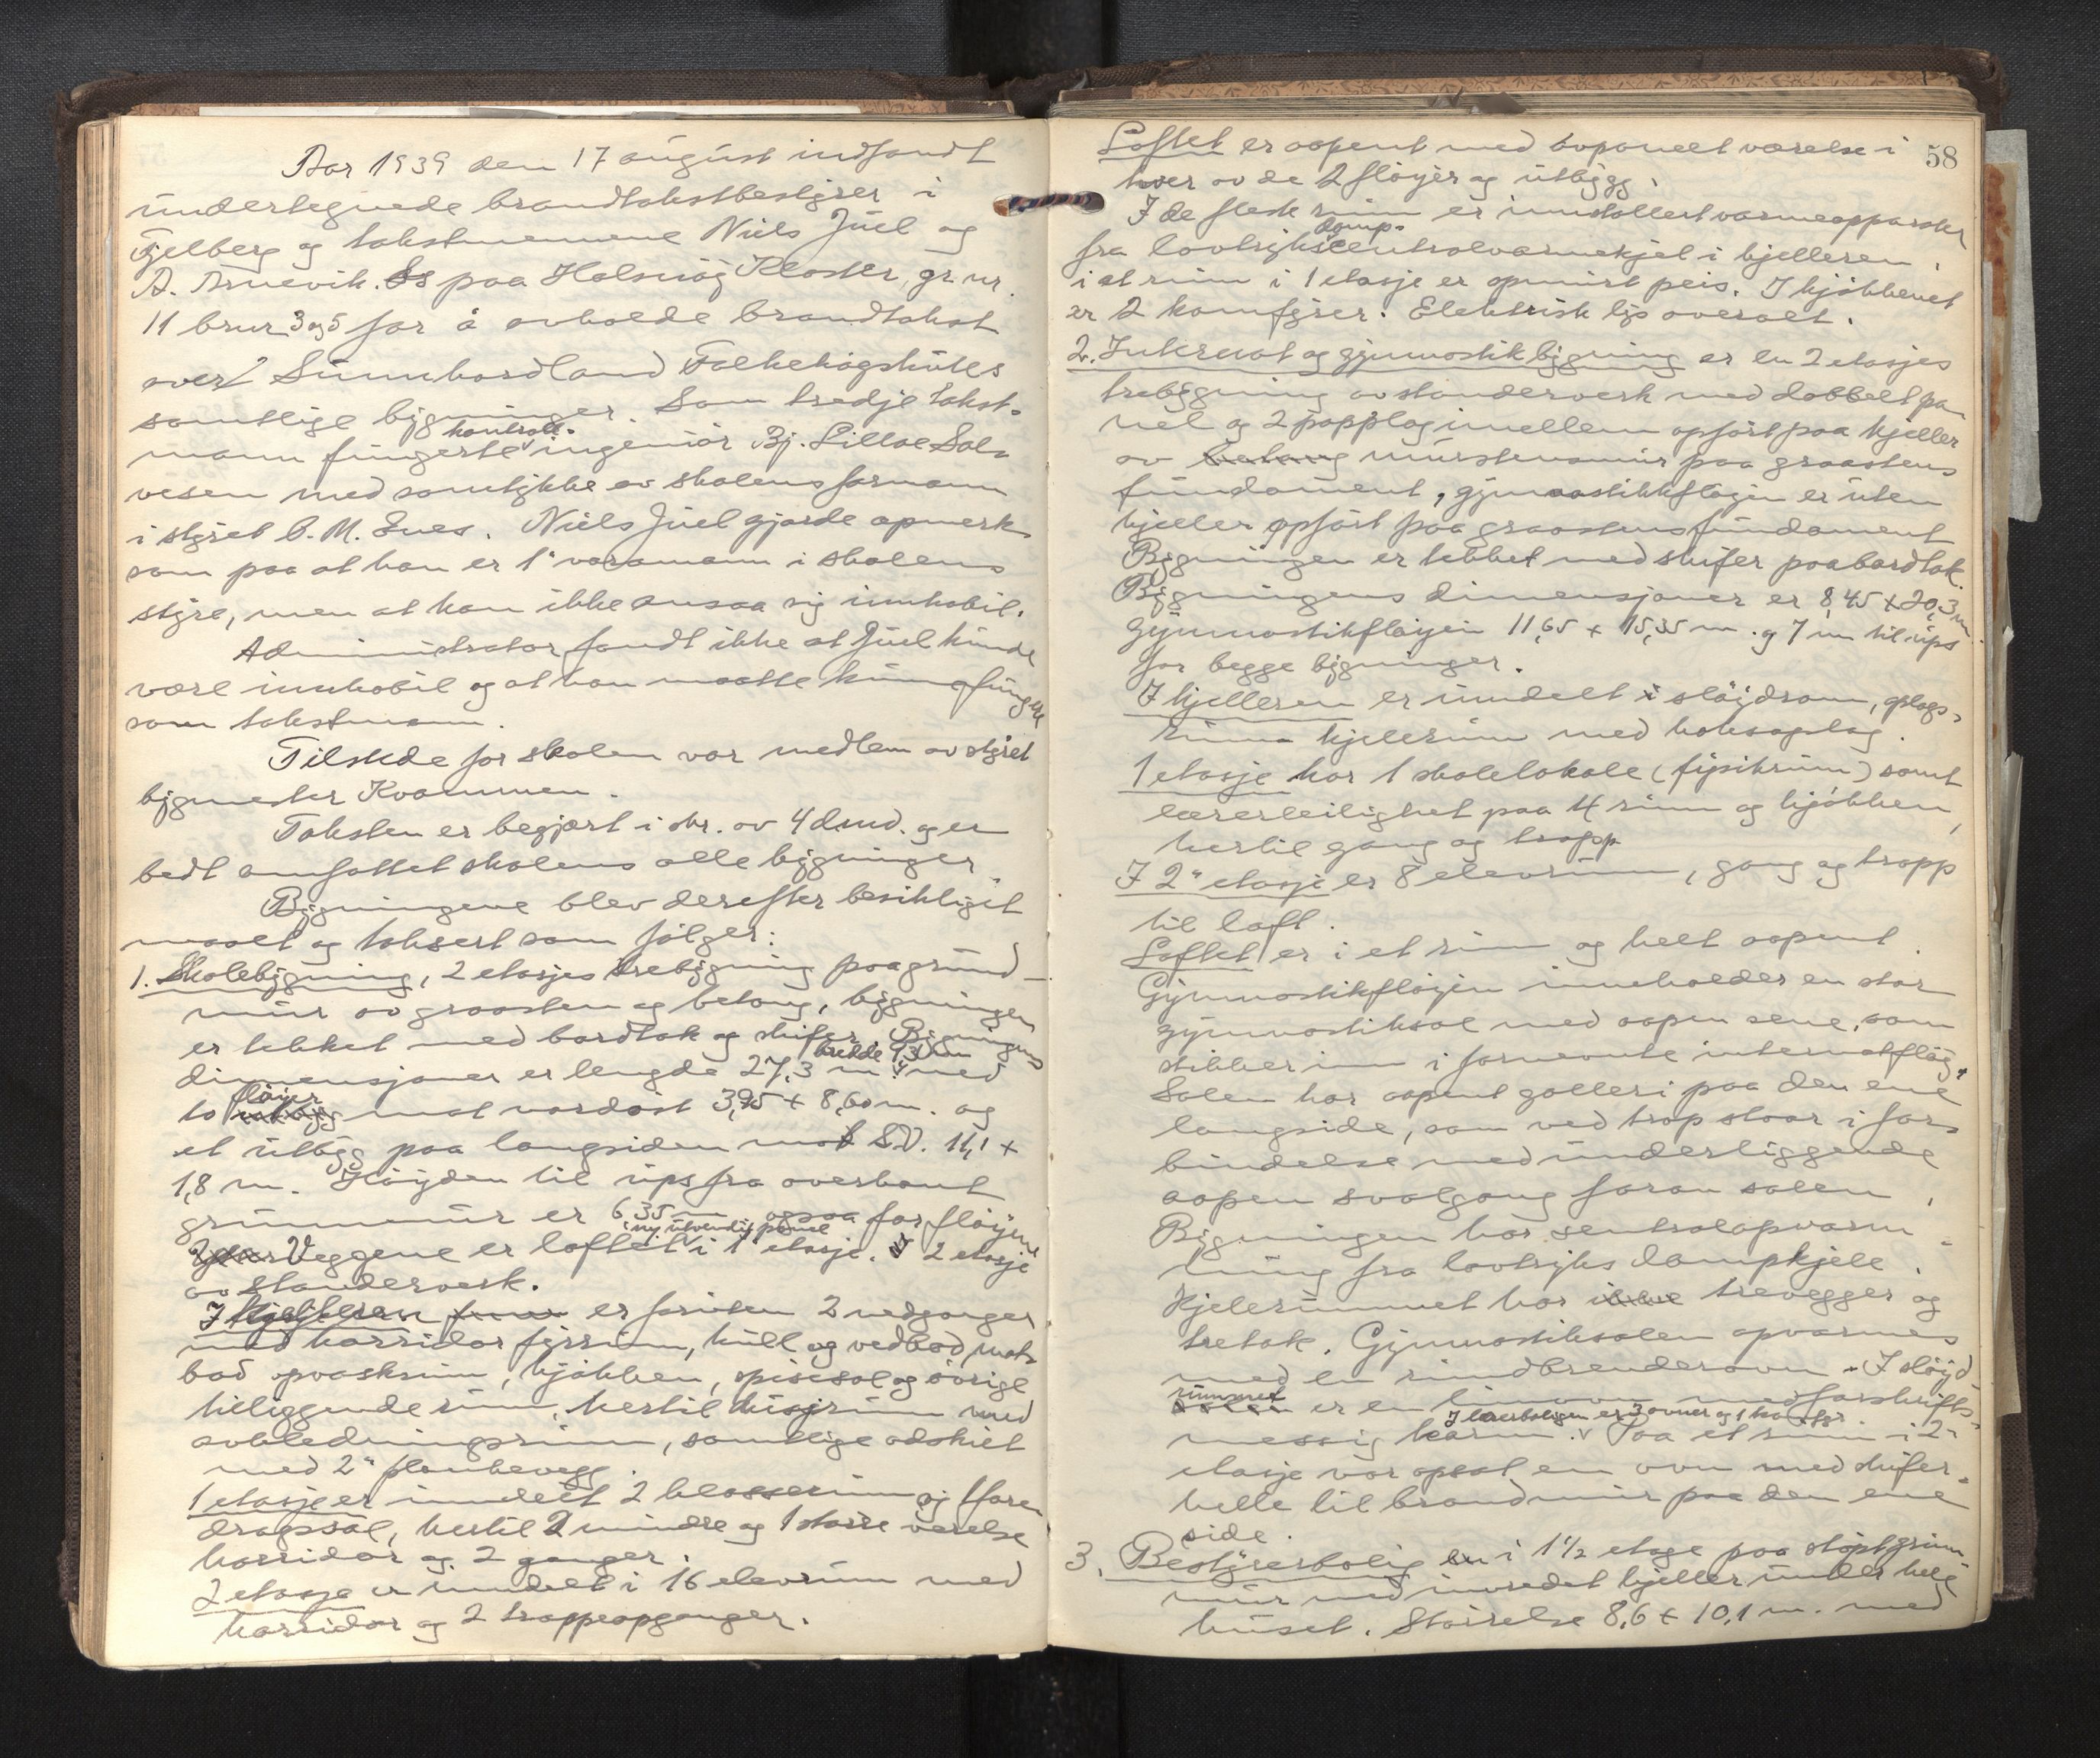 Aar 1939 den 17 august indfandt
undertegnede brandtakstbestyrer i
Fjelberg og takstmennene Niels Juel og
A. Arnevik. paa Halsnøy Kloster, gr. nr.
11 brnr 3 og 5 for å avholde brandtakst
over Sunnhordland Folkehøgskules
samtlige bygninger. Som tredje takst-
mann fungerte kontroll- ingeniør Bj. Lillae Sol-
vesen med samtykke av skolens formann
i styret O. M. Enes. Niels Juel gjorde opmerk-
som paa at han er 1' varamann i skolens
styre, men at han ikke ansaa sig innhabil.
Administrator fandt ikke at Juel kunde
være innhabil og at han maatte kunne fungere
som takstmann.
Tilstede for skolen var medlem av styret
bygmester Kvammen.
Taksten er begjært i skr. av 4 ds. md. og er
bedt omfattet skolens alle bygninger.
Bygningene blev derefter besiktiget
maalt og taksert som følger:
1. Skolebygning, 2 etasjes trebygning paa grund-
mur av graasten og betong, bygningen
er tekket med bordtak og skifer. Bygningens
dimensjoner er lengde 27,3 m. bredde med
to fløyer mot nordøst 3,95 + 8,60 m. og
et utbygg paa langsiden mot S.V. 11,1 +
1,8 m. Høyden til ups fra overkant
grunnmur er 6,35 m ogsaa for fløyene
Veggene er loftet i ny utvendig panel i 1' etasje. I 2 etasje
av standerverk.
I kjelleren er foruten 2 nedganger
med korridor fyrrum, kull og vedbod, mat-
bod opvaskrum, kjøkken, spisesal og øvrige
tiliggende rum, hertil rum med
avkledningsrum, samtlige adskilt
med 2" plankevegg.
1 etasje er inndelt 2 klasserum og 1 fore-
dragssal, hertil 2 mindre og 1 større værelse
korridor og 2 ganger.
2 etasje er inndelt i 16 elevrum med
korridor og 2 trappeopganger.
58
Loftet er aapent med bopanelt værelse i
hver av de 2 fløyer og utbygg.
I de fleste rum er innstallert varmeapparater
fra lavtryks damp- centralvarmekjel i kjelleren.
i et rum i 1 etasje er opmurt peis. I kjøkkenet
er 2 komfyrer. Elektrisk lys overalt.
2. Internat og gymnastikbygning er en 2 etasjes
trebygning av standerverk med dobbelt pa-
nel og 2 papplag imellem opført paa kjeller
av betong murstensmur paa graastens
fundament, gymnastikkfløyen er uten
kjeller opført paa graastensfundament
Bygningen er tekket med skifer paa bordtak.
Bygningens dimensjoner er 8,45 + 20,3 m
gymnastikfløyen 11,65 + 15,35 m. og 7 m til ups
for begge bygninger.
I kjelleren er inndelt i sløydrom, oplags-
rum kjelerum med koksoplag.
1 etasje har 1 skolelokale (fysikrum) samt
lærerleilighet paa 4 rum og kjøkken,
hertil gang og trapp.
I 2" etasje er 8 elevrum, gang og trapp
til loft.
Loftet er i et rum og helt aapent.
Gymnastikfløyen inneholder en stor
gymnastiksal med aapen sene, som
stikker inn i fornevnte internatfløy.
Salen har aapent galleri paa den ene
langside, som ved trap staar i for-
bindelse med underliggende
aapen svalgang foran salen.
Bygningen har sentralopvarm-
ning fra lavtryks dampkjele.
Kjelerummet har ikke trevegger og
tretak. Gymnastiksalen opvarmes
med en rundbrenderovn. I sløyd-
rummet er en med forskrifts-
messig karm. I lærerboligen er 3 ovner og 1 komfyr. Paa et rum i 2"
etasje var opsat en ovn med skifer-
helle til brandmur paa den ene
side.
3. Bestyrerbolig i 1½ etage paa støpt grun-
mur med innredet kjeller under hele
huset. Størrelse 8,6 + 10,1 m. med